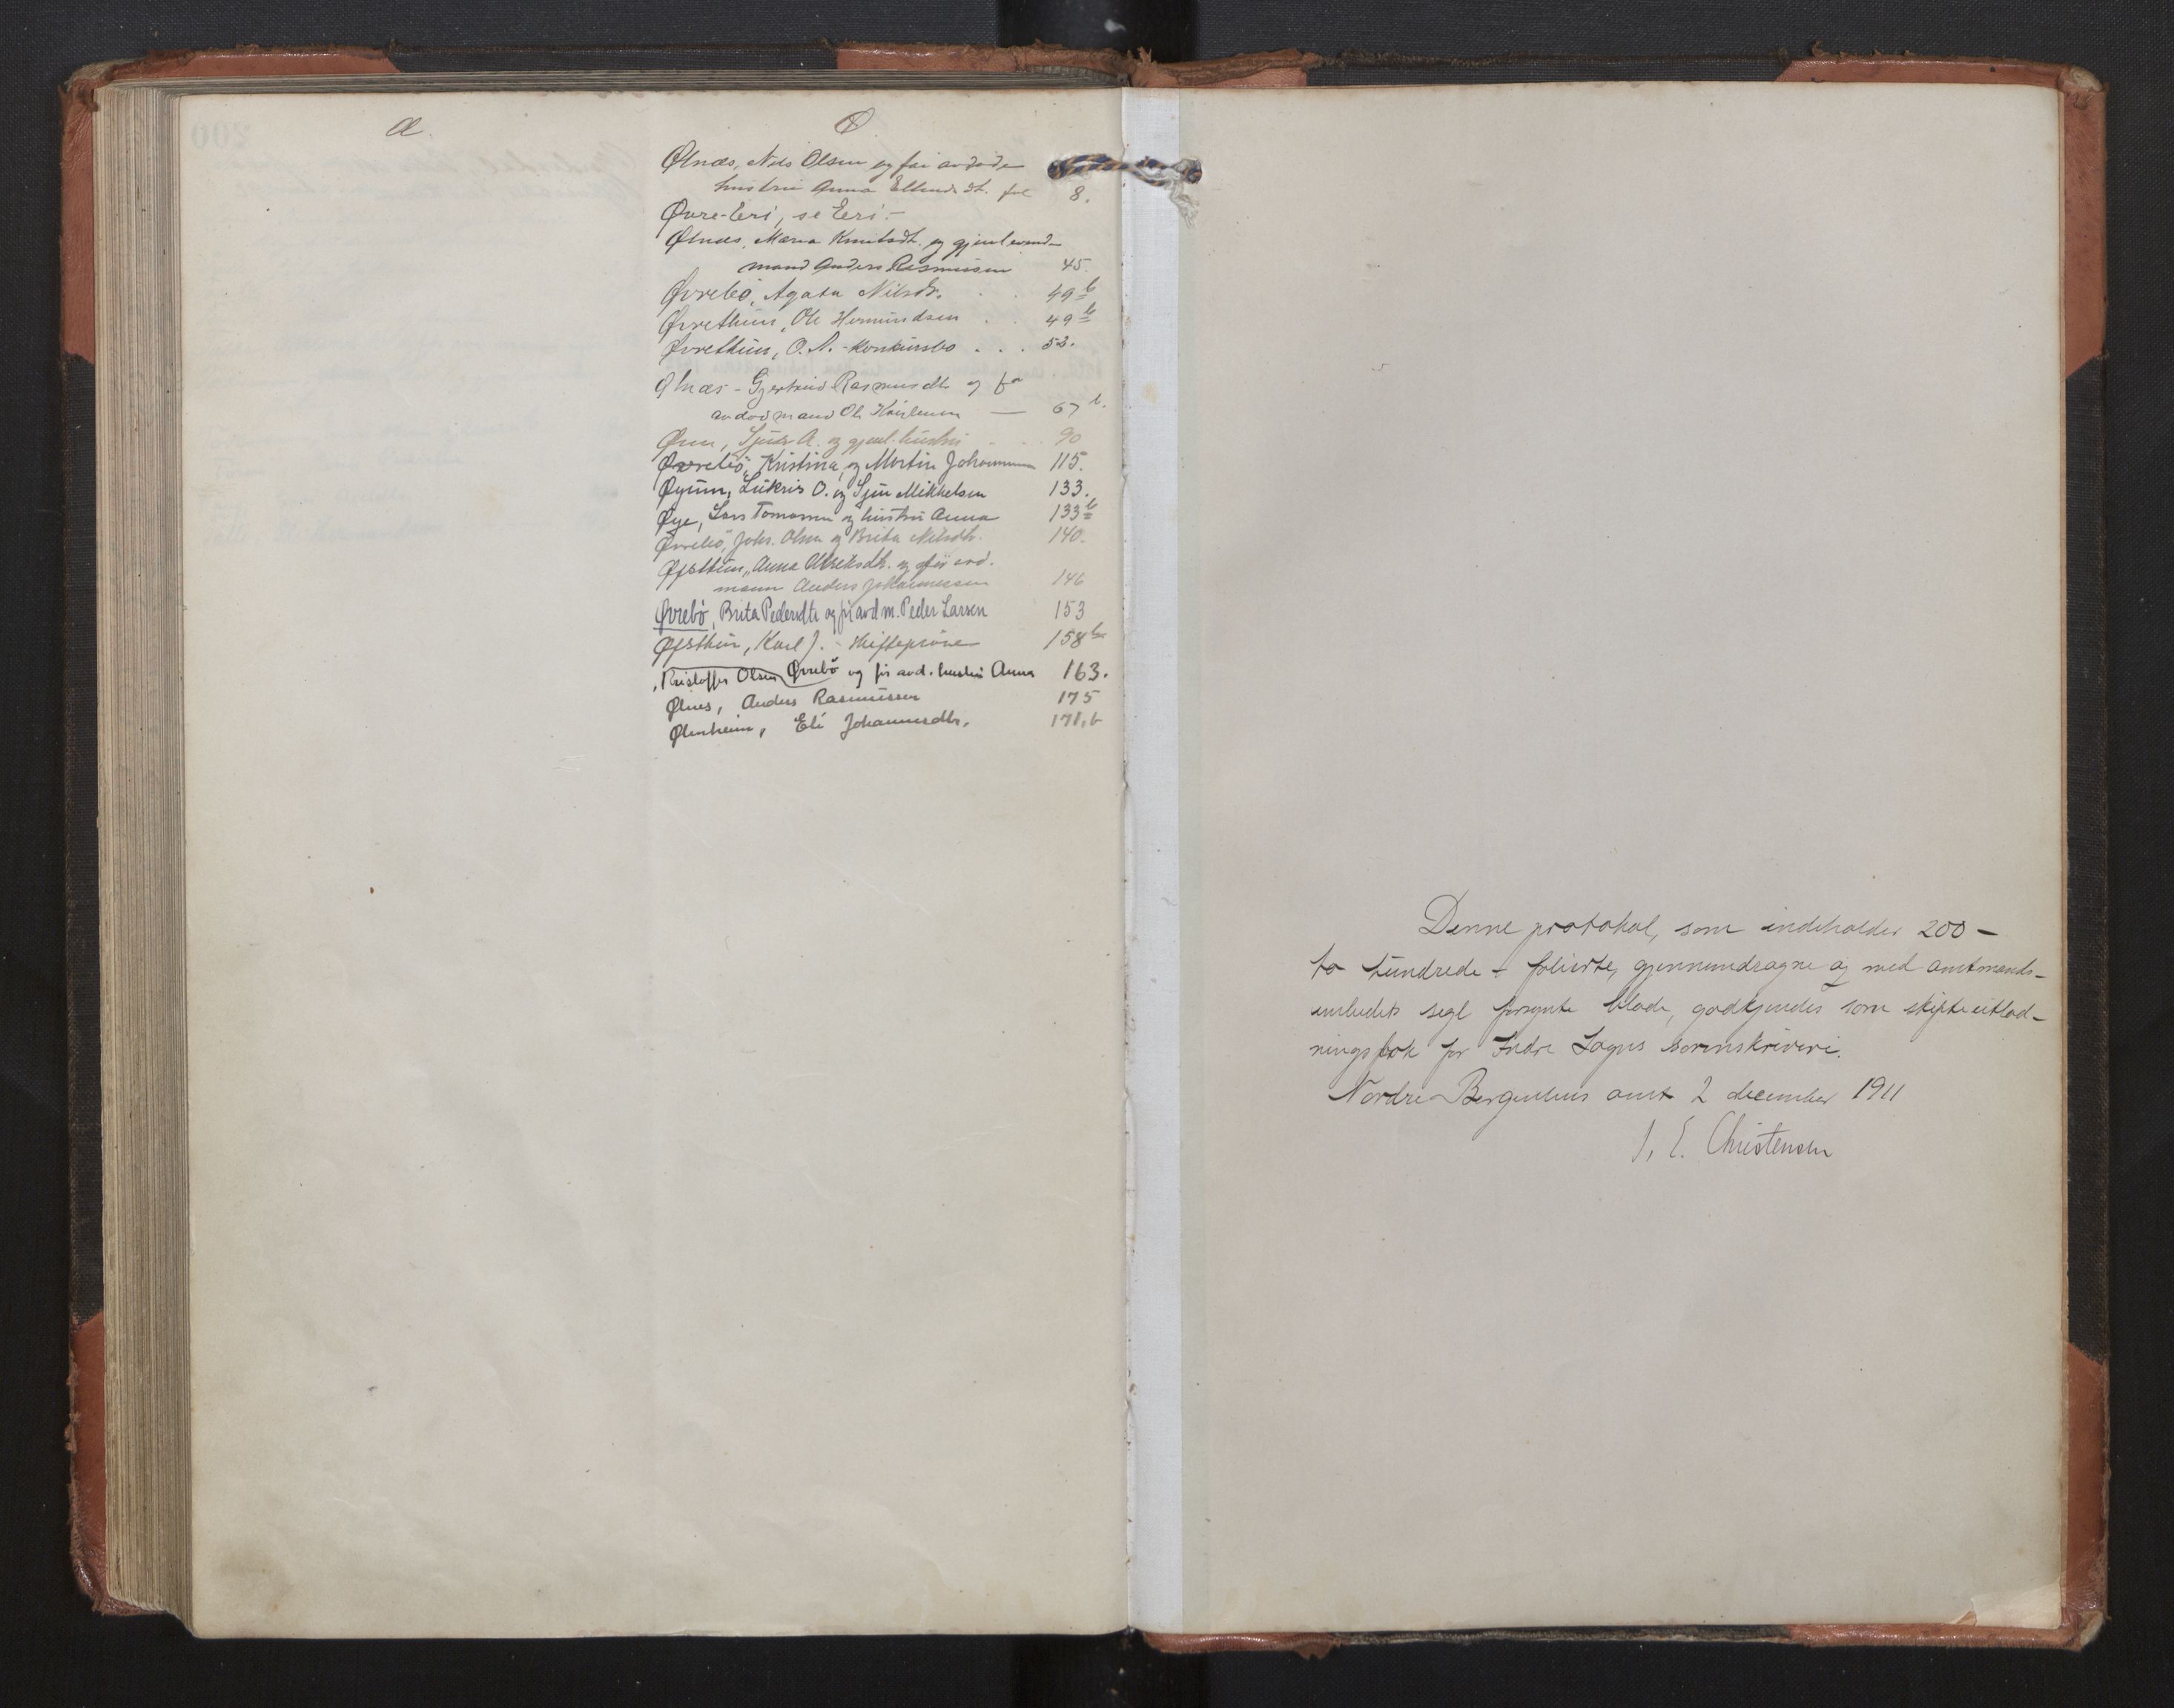 Æ
Ø
Ølnæs, Nils Olsen og for avdøde
hustru Anna Ellendsdt. fol 8.
Øvre-Eri, se Eri.-
Ølnæs, Maria Knutsdt. og gjenlevend-
mand Anders Rasmussen 45.
Øvrebö, Agata Nilsdt. . . 49 b
Øvrethun, Ole Hermundsen . . 49 b
Øvrethun, O. N. - konkursbo . . . 53.
Ølnæs - Gjertrud Rasmusdtr og for
avdød mand Ole — 67 b.
Sjur A. og gjenl. hustru . . . 90
Øvrebö, Kristina, og Martin Johannesen 115.
Øyum, Lukris O. og Sjur Mikkelsen 133.
Øye, Lars Tomassen og hustru Anna 133 b
Øvrebö, Johs. Olsen og Brita Nilsdtr. 140.
Øfsthun, Anna og for avd.
mann Anders Johannessen 146
Øvrebö, Brita Pedersdtr og for avd m. Peder Larsen 153
Øfsthun, Karl J. - skifteprøve 158 b
Kristoffer Olsen Øvrebö og for avd. hustru Anna 163.
Ølnes, Anders Rasmussen 175
Eli Johannesdtr. 178, b
200
Denne protokol, som indeholder 200 -
to hundrede - folierte, gjennemdragne og med amtmands-
embedets segl forsynte blade, godkjendes som skifteutlod-
ningsbok for Indre Sogns sorenskriveri.
Nordre Bergenhus amt 2 december 1911
J. E. Christensen